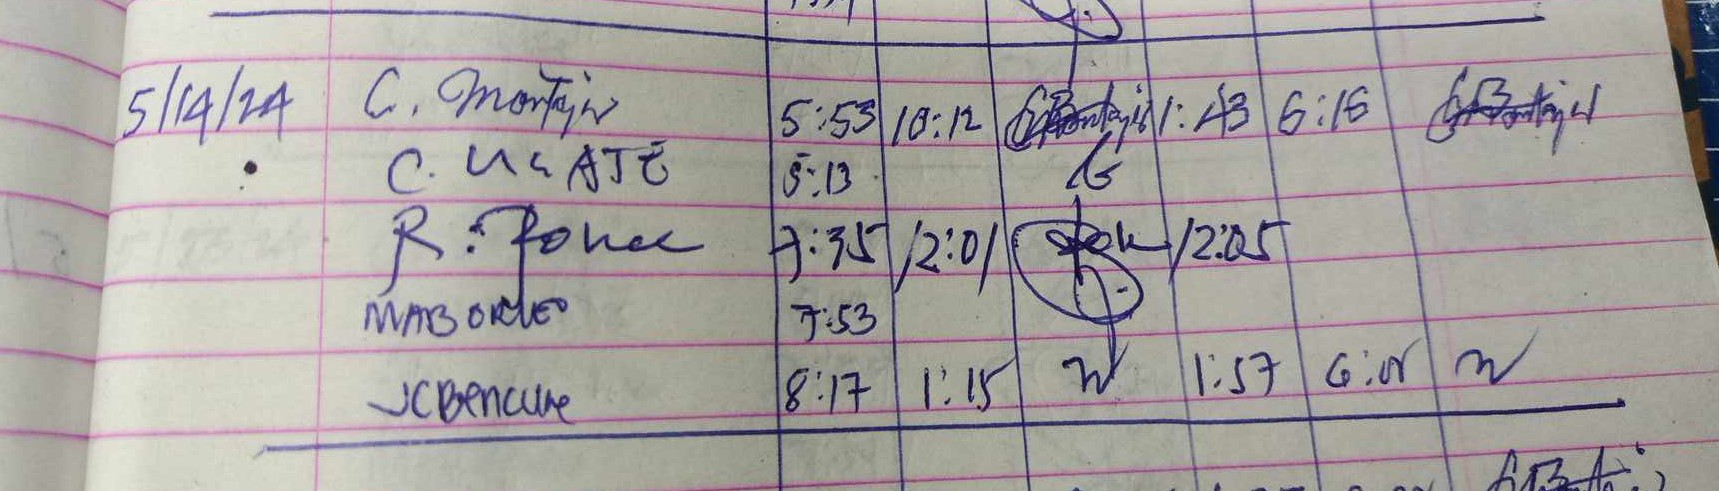 5/14/24 C. Montajes 5:53 10:12 1:43 6:16
C. UGATE 5:13
R. Ponce 7:35 12:01 12:05
MABORNEO 7:53
JCBencure 8:17 1:15 1:57 6:08